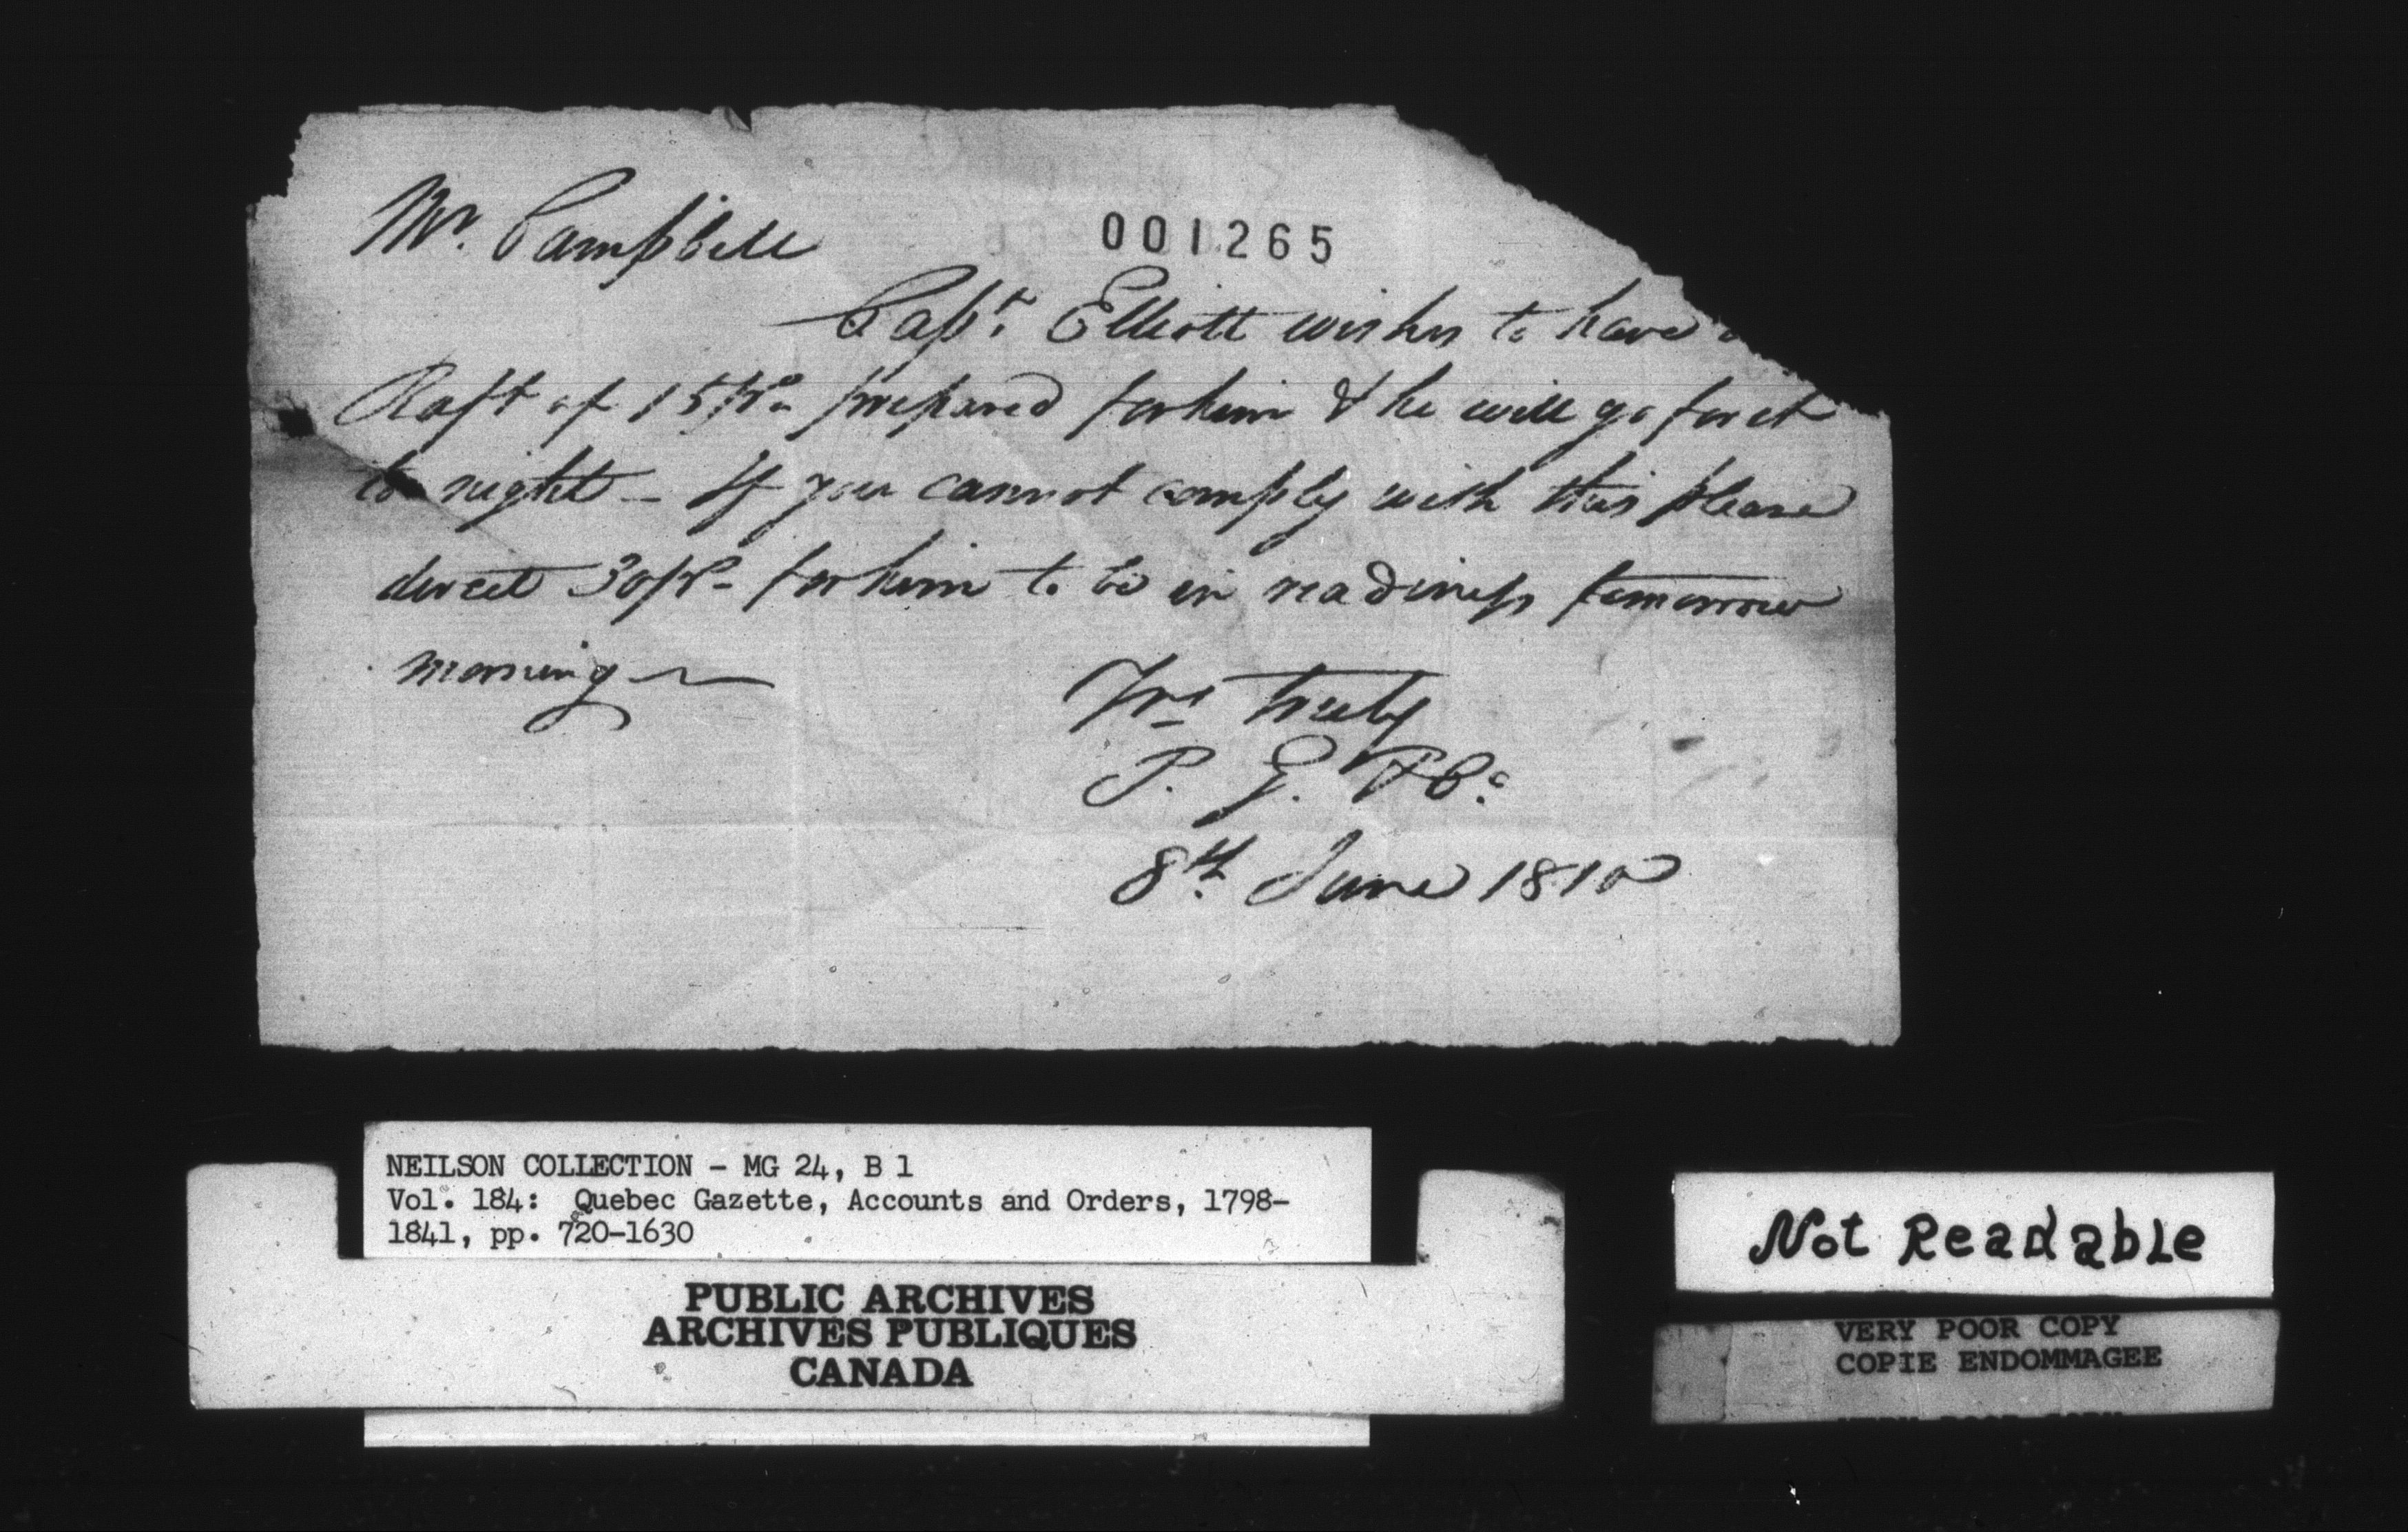 Mr. Campbell
001265
Capt. Elliott wishes to have a
Raft of 15 ps. prepared for him & he will go for it
to night – If you cannot comply with this please
direct 30 ps. for him to be in readiness tomorrow
morning –
Yrs truly
P. G. & Co.
8th June 1810
NEILSON COLLECTION - MG 24, B 1
Vol. 184: Quebec Gazette, Accounts and Orders, 1798-
1841, pp. 720-1630
PUBLIC ARCHIVES
ARCHIVES PUBLIQUES
CANADA
Not Readable
VERY POOR COPY
COPIE ENDOMMAGEE